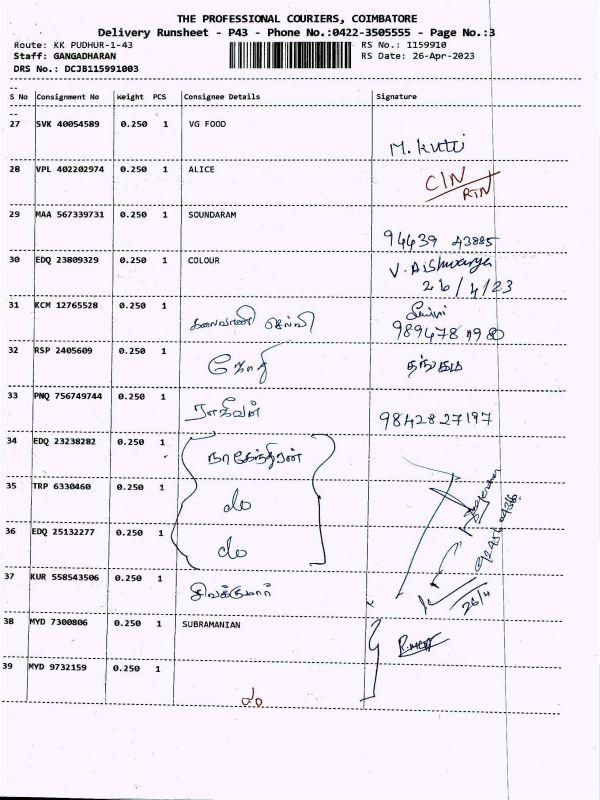 THE PROFESSIONAL COURIERS, COIMBATORE
Delivery Runsheet - P43 - Phone No.:0422-3505555 - Page No.:3
Route: KK PUDHUR-1-43 RS No.: 1159910
Staff: GANGADHARAN RS Date: 26-Apr-2023
DRS No.: DCJB115991003
--
S No Consignment No Weight PCS Consignee Details Signature
--
27 SVK 40054589 0.250 1 VG FOOD
M. Kutti
28 VPL 402202974 0.250 1 ALICE
C/N
RTN
29 MAA 567339731 0.250 1 SOUNDARAM
94439 43885
30 EDQ 23809329 0.250 1 COLOUR
V. Aishwarya
26/4/23
31 KCM 12765528 0.250 1
கலைவாணி செல்வி
32 RSP 2405609 0.250 1
ஜோதி தங்கம்
33 PNQ 756749744 0.250 1
ராகவன் 98428 27197
34 EDQ 23238282 0.250 1
நாகேந்திரன்
35 TRP 6330460 0.250 1
do
36 EDQ 25132277 0.250 1
do
37 KUR 558543506 0.250 1
சிவக்குமார் 26/4
38 MYD 7300806 0.250 1 SUBRAMANIAN
39 MYD 9732159 0.250 1
do